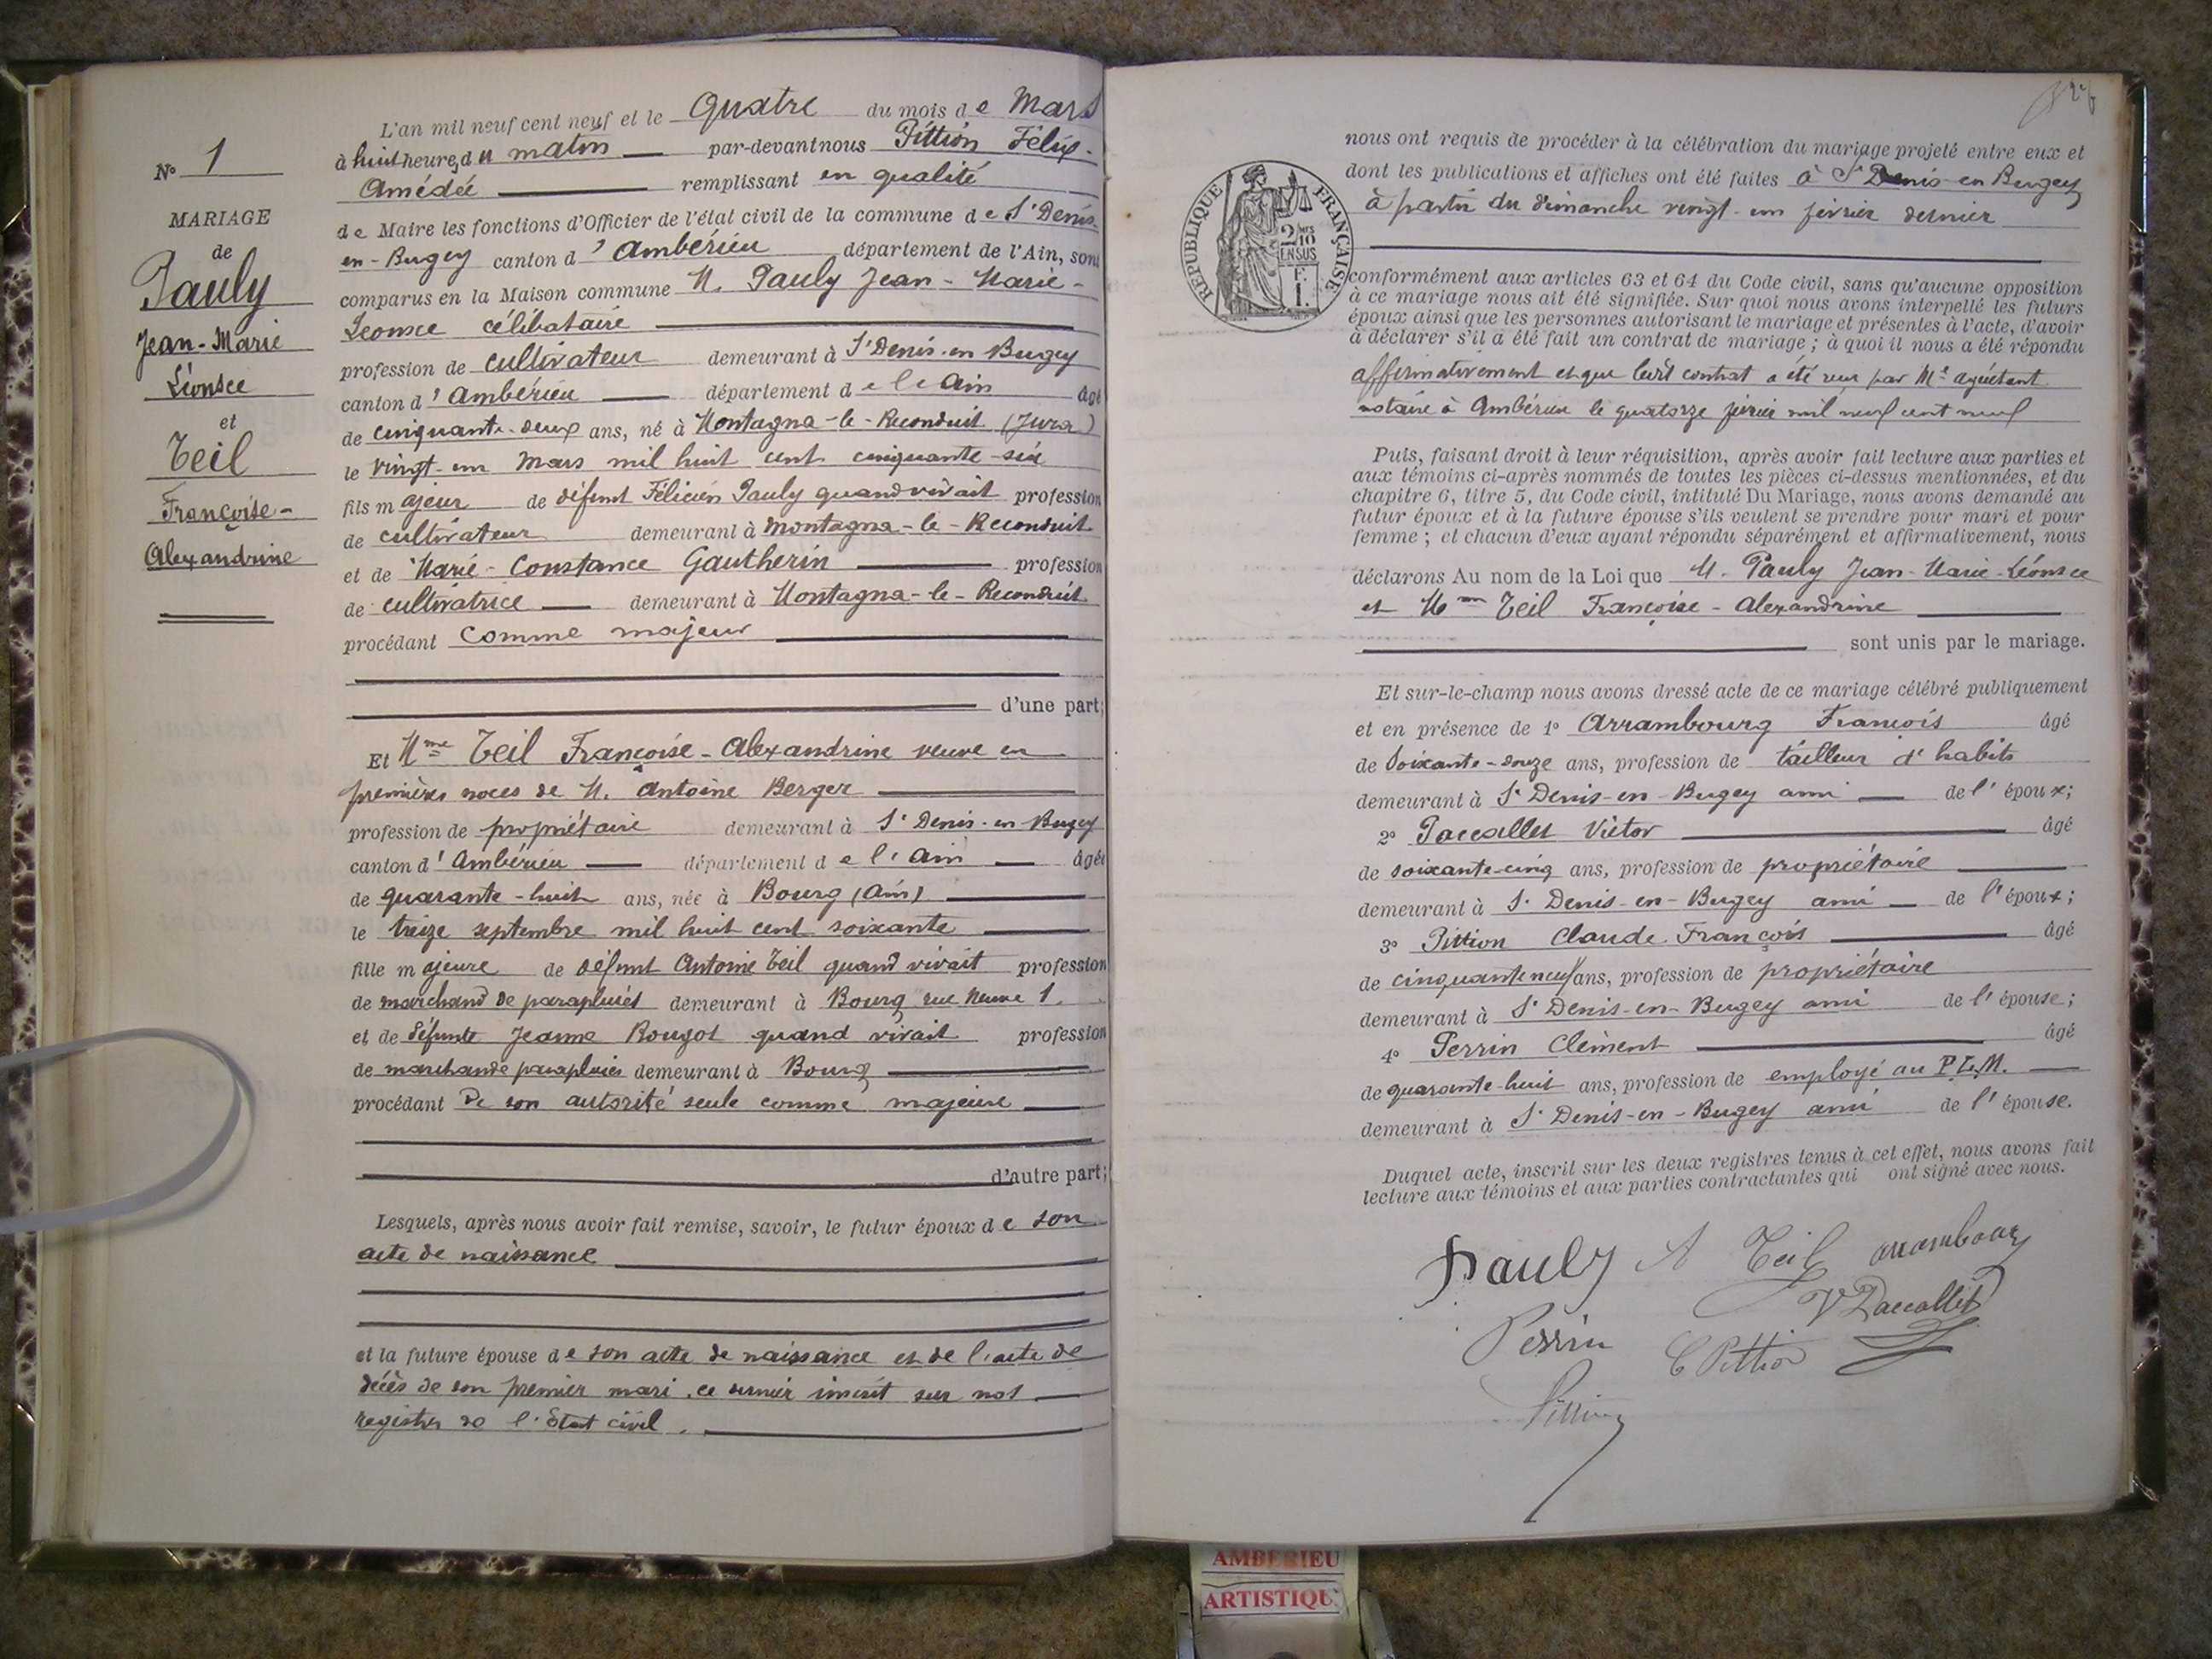 N° 1
MARIAGE
de
Pauly
Jean-Marie
Léonsce
et
Teil
Françoise-
Alexandrine
L'an mil neuf cent neuf et le Quatre du mois de Mars
à huit heures du matin par-devant nous Pittion Félix-
Amédée remplissant en qualité
de Maire les fonctions d'Officier de l'état civil de la commune de St Denis-
en-Bugey canton d'Ambérieu département de l'Ain, sont
comparus en la Maison commune M. Pauly Jean-Marie-
Léonsce célibataire
profession de cultivateur demeurant à St Denis-en Bugey
canton d'Ambérieu département de l'Ain âgé
de cinquante-deux ans, né à Montagna-le-Reconduit (Jura)
le vingt-un Mars mil huit cent cinquante-six
fils majeur de défunt Félicien Pauly quand vivait profession
de cultivateur demeurant à Montagna-le-Reconduit
et de Marie-Constance Gautherin profession
de cultivatrice demeurant à Montagna-le-Reconduit
procédant comme majeur
d'une part;
Et Mme Teil Françoise-Alexandrine veuve en
premières noces de M. Antoine Berger
profession de propriétaire demeurant à St Denis-en-Bugey
canton d'Ambérieu département de l'Ain âgée
de quarante-huit ans, née à Bourg (Ain)
le treize septembre mil huit cent soixante
fille majeure de défunt Antoine Teil quand vivait profession
de marchand de parapluies demeurant à Bourg rue Neuve 1.
et de défunte Jeanne Rougot quand vivait profession
de marchande parapluies demeurant à Bourg
procédant De son autorité seule comme majeure
d'autre part;
Lesquels, après nous avoir fait remise, savoir, le futur époux de son
acte de naissance
et la future épouse de son acte de naissance et de l'acte de
décès de son premier mari. ce dernier inscrit sur nos
registres de l'Etat civil.
nous ont requis de procéder à la célébration du mariage projeté entre eux et
dont les publications et affiches ont été faites à St Denis-en Bugey
à partir du dimanche vingt-un février dernier
RÉPUBLIQUE FRANÇAISE
2/10
EN SUS
F.
1.
conformément aux articles 63 et 64 du Code civil, sans qu'aucune opposition
à ce mariage nous ait été signifiée. Sur quoi nous avons interpellé les futurs
époux ainsi que les personnes autorisant le mariage et présentes à l'acte, d'avoir
à déclarer s'il a été fait un contrat de mariage ; à quoi il nous a été répondu
affirmativement et que ledit contrat a été reçu par Me
notaire à Ambérieu le quatorze février mil neuf cent neuf
Puis, faisant droit à leur réquisition, après avoir fait lecture aux parties et
aux témoins ci-après nommés de toutes les pièces ci-dessus mentionnées, et du
chapitre 6, titre 5, du Code civil, intitulé Du Mariage, nous avons demandé au
futur époux et à la future épouse s'ils veulent se prendre pour mari et pour
femme ; et chacun d'eux ayant répondu séparément et affirmativement, nous
déclarons Au nom de la Loi que M. Pauly Jean-Marie-Léonsce
et Mme Teil Françoise-Alexandrine
sont unis par le mariage.
Et sur-le-champ nous avons dressé acte de ce mariage célébré publiquement
et en présence de 1° Arrambourg François âgé
de soixante-douze ans, profession de tailleur d'habits
demeurant à St Denis-en-Bugey ami de l'époux;
2° Paccallet Victor âgé
de soixante-cinq ans, profession de propriétaire
demeurant à St Denis-en-Bugey ami de l'époux;
3° Pittion Claude-François âgé
de cinquante neuf ans, profession de propriétaire
demeurant à St Denis-en-Bugey ami de l'épouse;
4° Perrin Clément âgé
de quarante-huit ans, profession de employé au P.L.M.
demeurant à St Denis-en-Bugey ami de l'épouse.
Duquel acte, inscrit sur les deux registres tenus à cet effet, nous avons fait
lecture aux témoins et aux parties contractantes qui ont signé avec nous.
Pauly A Teil Arrambourg
V Paccallet
Perrin C Pittion
Pittion
AMBERIEU
ARTISTIQU